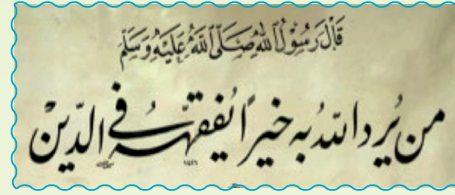 قَالَ رَسُوْلُ اللهِ صَلَّى اللهُ عَلَيْهِ وَسَلَّمَ
من يُرِدِ اللهُ بِه خيرًا يُفقهه في الدّينْ